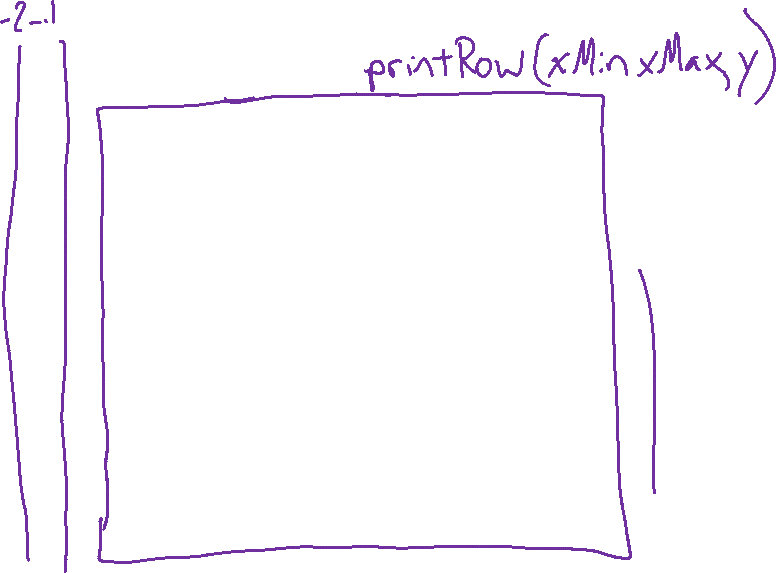 -2 -.1
printRow(xMin xMax, y)